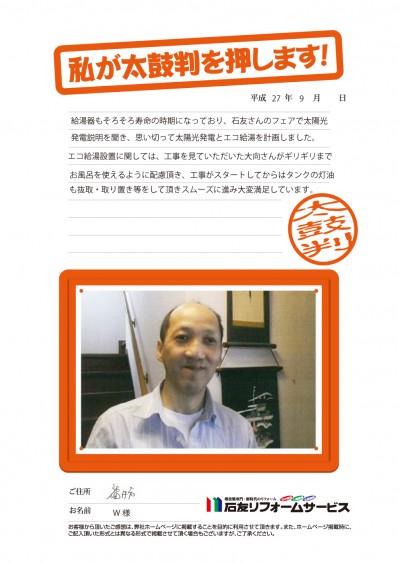 私が太鼓判を押します!
平成 27 年 9 月 日
給湯器もそろそろ寿命の時期になっており、石友さんのフェアで太陽光
発電説明を聞き、思い切って太陽光発電とエコ給湯を計画しました。
エコ給湯設置に関しては、工事を見ていただいた大向さんがギリギリまで
お風呂を使えるように配慮頂き、工事がスタートしてからはタンクの灯油
も抜取・取り置き等をして頂きスムーズに進み大変満足しています。
太鼓判
ご住所
お名前 W 様
増改築専門・新時代のリフォーム
石友リフォームサービス
お客様から頂いたご感想は、弊社ホームページに掲載することを目的に利用させて頂きます。また、ホームページ掲載時に、
ご記入頂いた形式とは異なる形式で掲載させて頂く場合もございますが、ご了承ください。